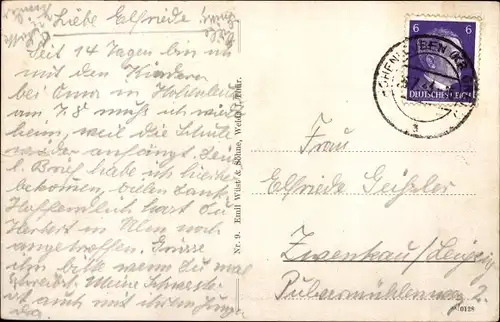 Liebe Elfriede!
Seit 14 Tagen bin ich
mit den Kindern
bei Oma in
am 7.8 muß ich wieder
heim, weil die Schule
wieder anfängt. Dein
l. Brief habe ich hier
bekommen, vielen Dank
Hoffentlich hast Du
Herbert in noch
angetroffen. Grüsse
ihn bitte wenn Du mal
schreibst. Meine Schwester
ist auch mit ihrem Jungen
da.
Nr. 9. Emil Wüst & Söhne, Weida, Thür.
6 6
DEUTSCHES REICH
Frau
Elfriede Geißler
Zwenkau/Leipzig
Pulvermühlenweg 2.
0128